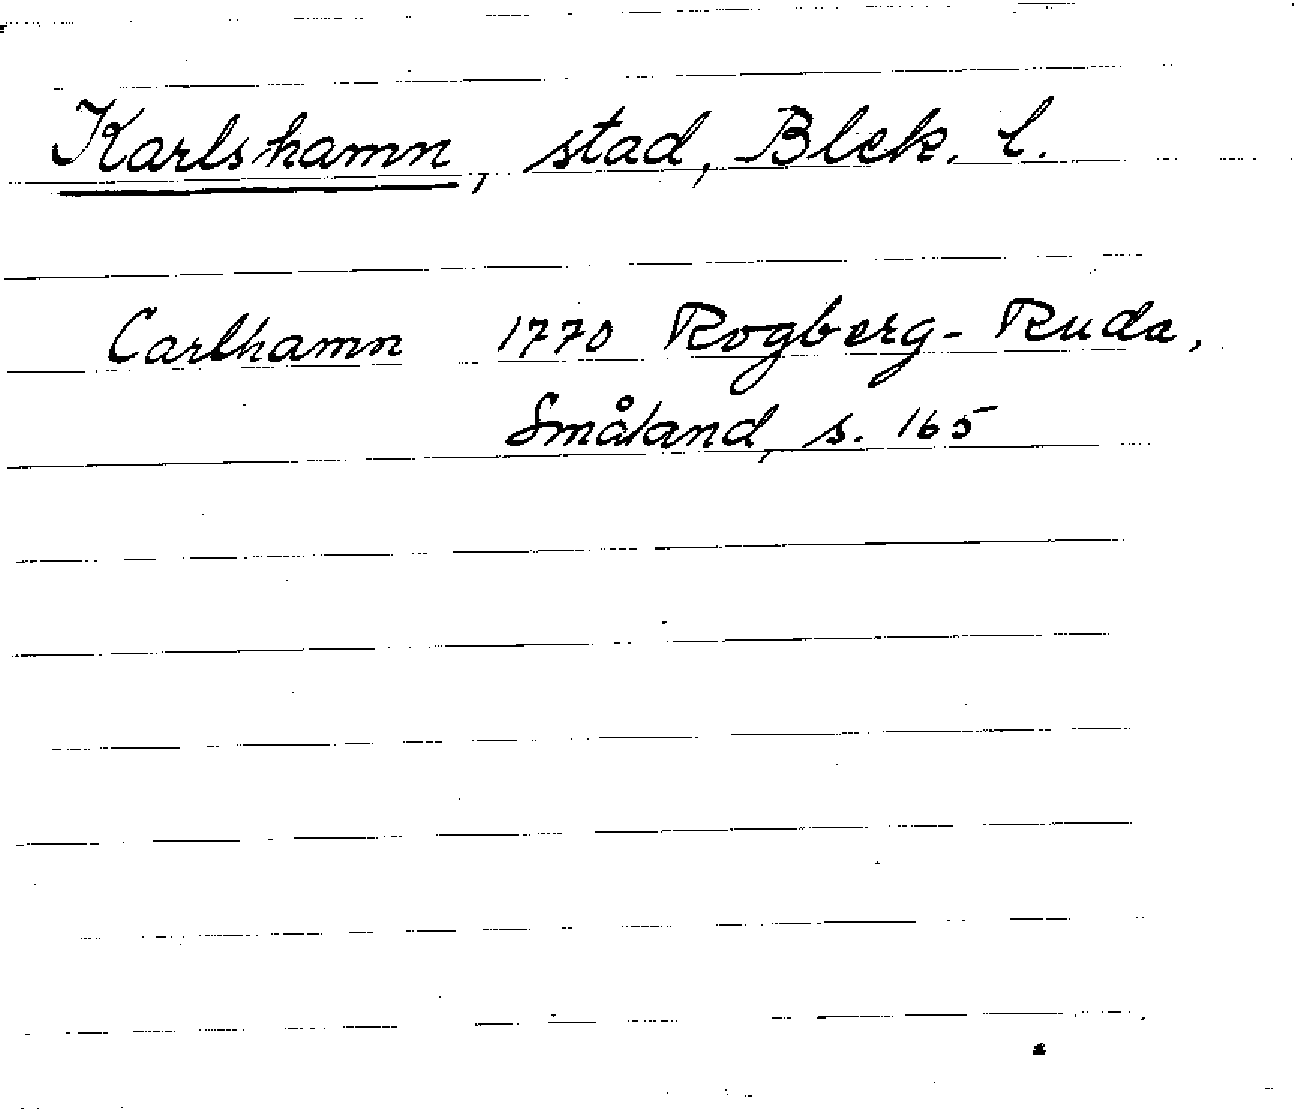 Karlshamn, stad, Blek. l.
Carlhamn 1770 Rogberg-Ruda,
Småland, s. 165